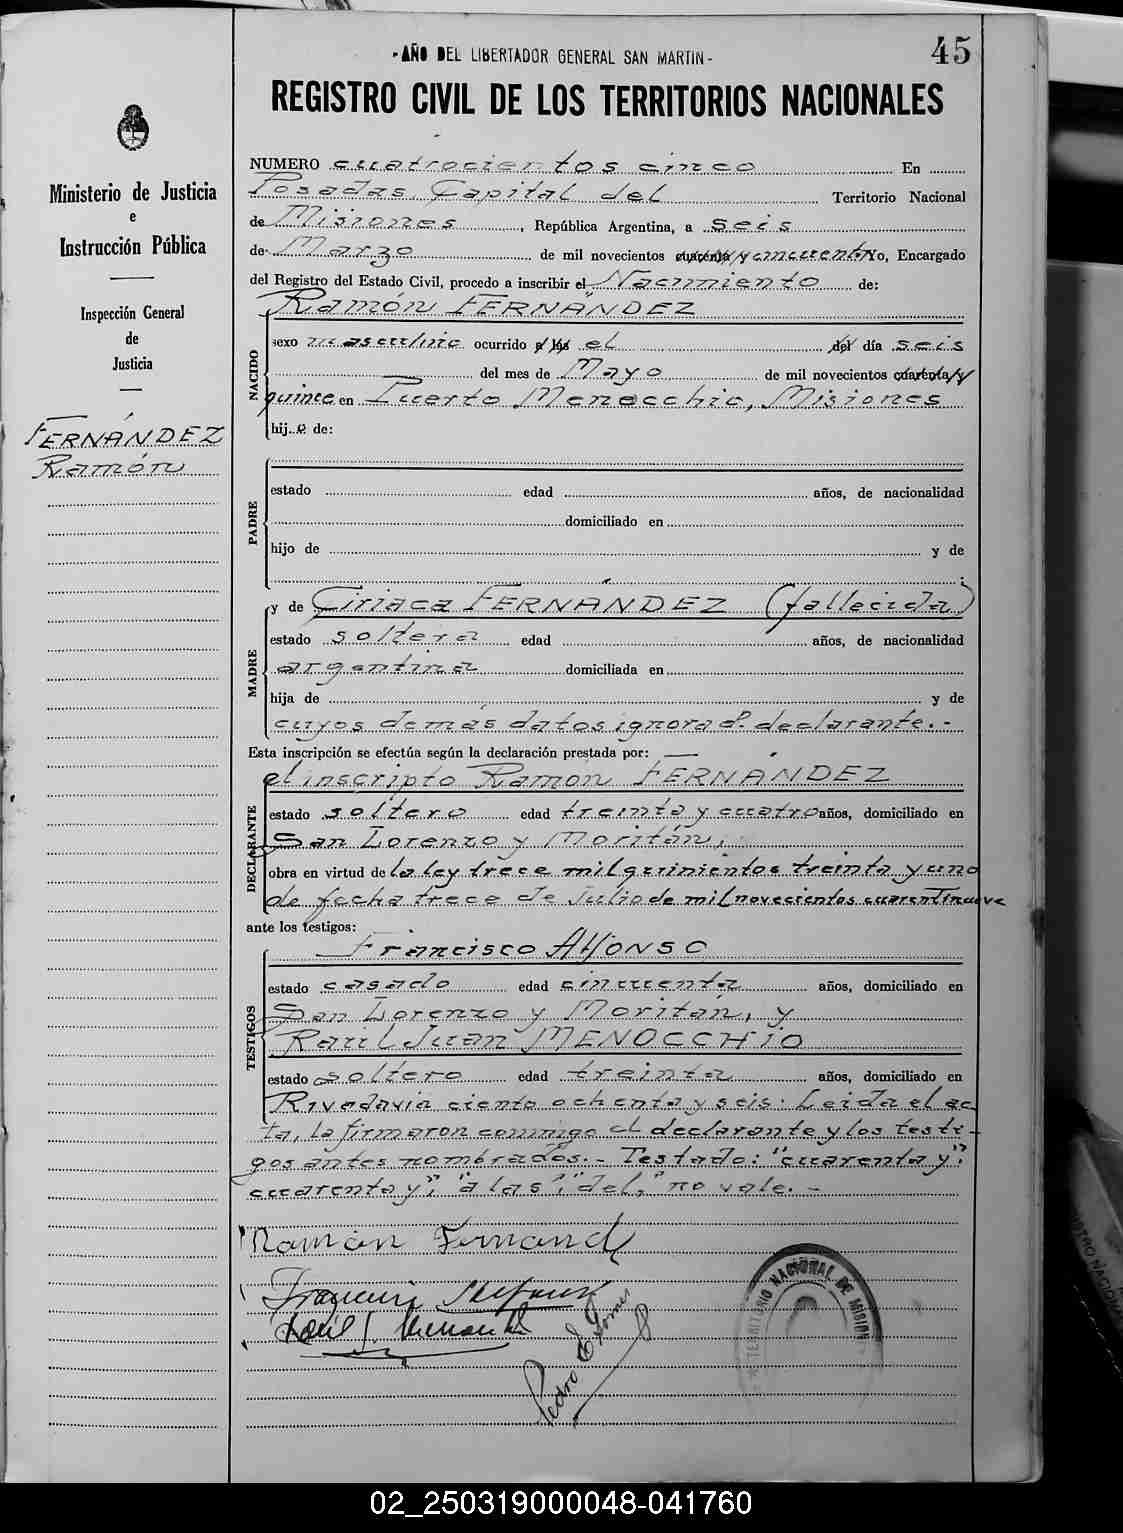 -AÑO DEL LIBERTADOR GENERAL SAN MARTIN-
45
REGISTRO CIVIL DE LOS TERRITORIOS NACIONALES
Ministerio de Justicia
e
Instrucción Pública
Inspección General
de
Justicia
FERNÁNDEZ
Ramón
NUMERO cuatrocientos cinco En
Posadas, Capital del Territorio Nacional
de Misiones, República Argentina, a seis
de Marzo de mil novecientos cuarenta y cincuenta Yo, Encargado
del Registro del Estado Civil, procedo a inscribir el Nacimiento de:
Ramón FERNÁNDEZ
NACIDO
sexo masculino ocurrido a las el del día seis
del mes de Mayo de mil novecientos cuarenta y
quince en Puerto Menocchio, Misiones
hij..o de:
PADRE
estado edad años, de nacionalidad
domiciliado en
hijo de y de
;
MADRE
y de Ciriaca FERNÁNDEZ (fallecida)
estado soltera edad años, de nacionalidad
argentina domiciliada en
hija de y de
cuyos demás datos ignora el declarante.-
Esta inscripción se efectúa según la declaración prestada por:
DECLARANTE
el inscripto Ramón FERNÁNDEZ
estado soltero edad treinta y cuatro años, domiciliado en
San Lorenzo y Moritán,
obra en virtud de la ley trece mil quinientos treinta y uno
de fecha trece de Julio de mil novecientos cuarentinueve
ante los testigos:
TESTIGOS
Francisco Alfonso
estado casado edad cincuenta años, domiciliado en
San Lorenzo y Moritán, y
Raul Juan MENOCCHIO
estado soltero edad treinta años, domiciliado en
Rivadavia ciento ochenta y seis: Leida el ac-
ta, la firmaron conmigo el declarante y los testi-
gos antes nombrados.- Testado: "cuarenta y";
cuarenta y", "a las", "del," no vale.-
Ramón Fernandez
TERRITORIO NACIONAL DE MISIONES
02_250319000048-041760